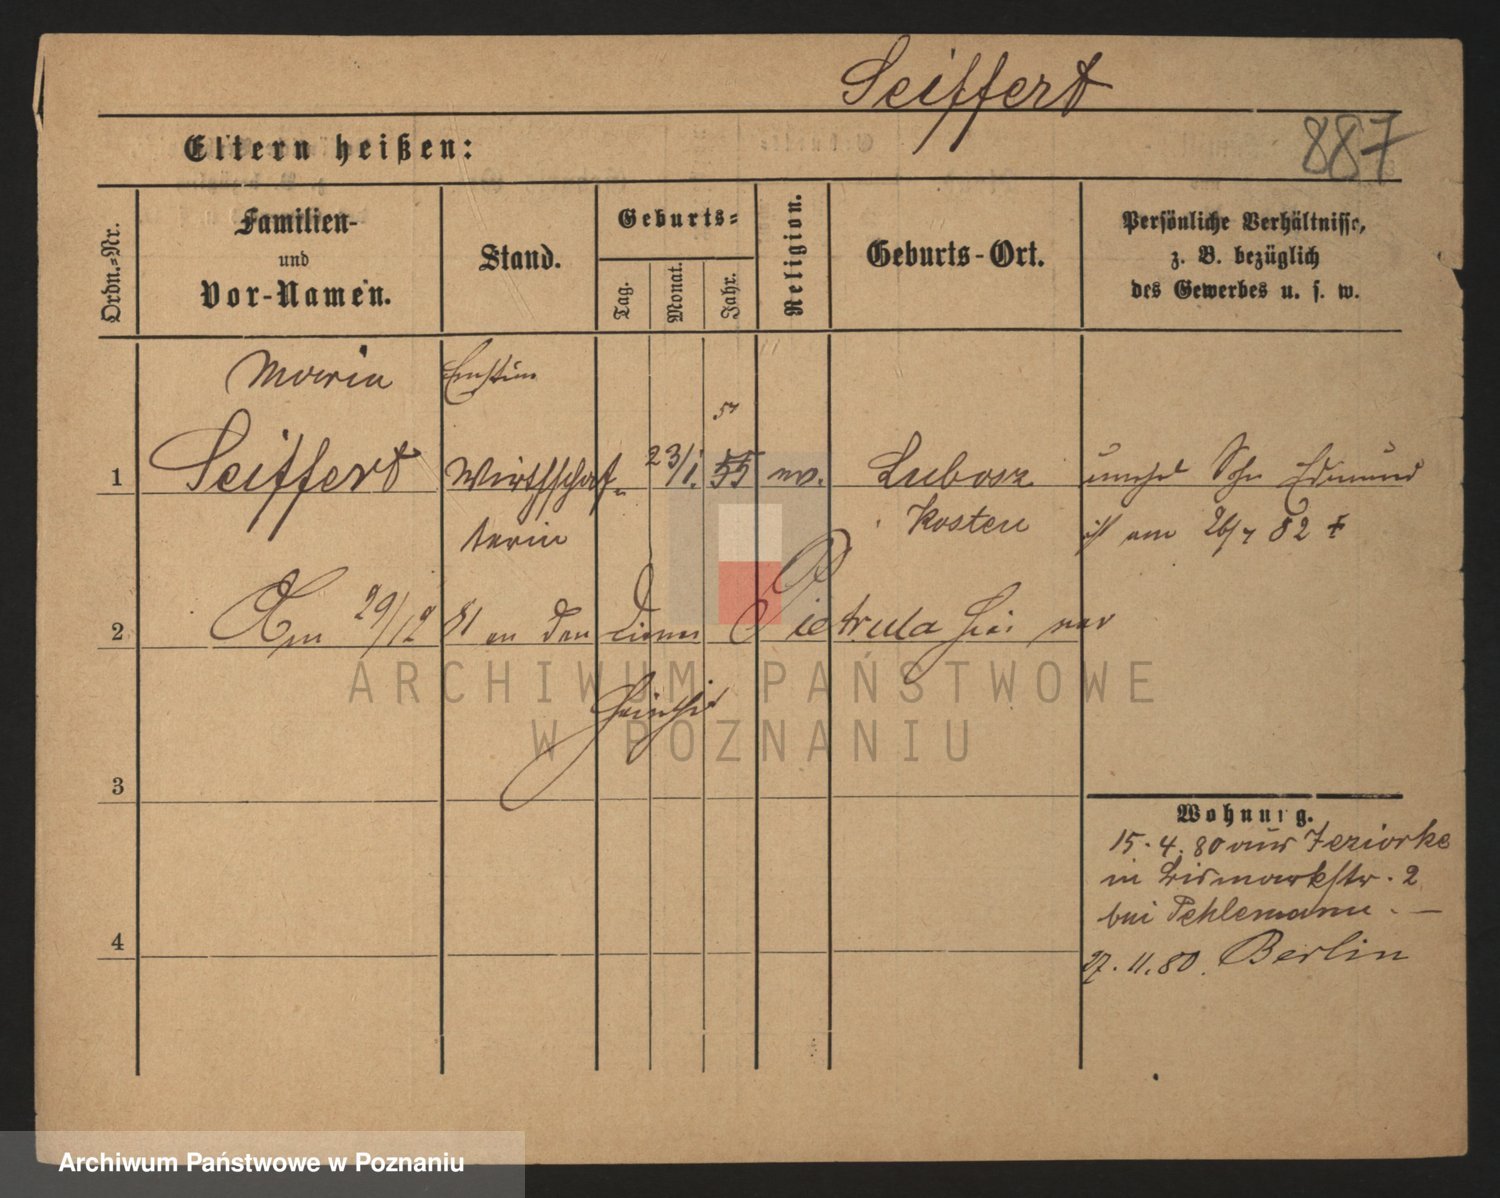 Seiffert
887
Eltern heißen:
Ordn.=Nr.
Familien-
und
Vor-Namen.
Stand.
Geburts=
Tag.
Monat.
Jahr.
Religion.
Geburts-Ort.
Persönliche Verhältnisse,
z. B. bezüglich
des Gewerbes u. s. w.
Maria Ernstine
57
1 Seiffert Wirthschaf- 23/1. 55 ev. Lubosz unehel Sohn Edmund
terin Kosten ist am 26/7 82 †
2 Am 29/12 81 an den Diener Pietrula hier ver
3
Wohnung.
15.4.80 aus Jeziorke
in Bismarkstr. 2
bei Pehlemann. —
4
27.11.80. Berlin
ARCHIWUM PAŃSTWOWE
W POZNANIU
Archiwum Państwowe w Poznaniu